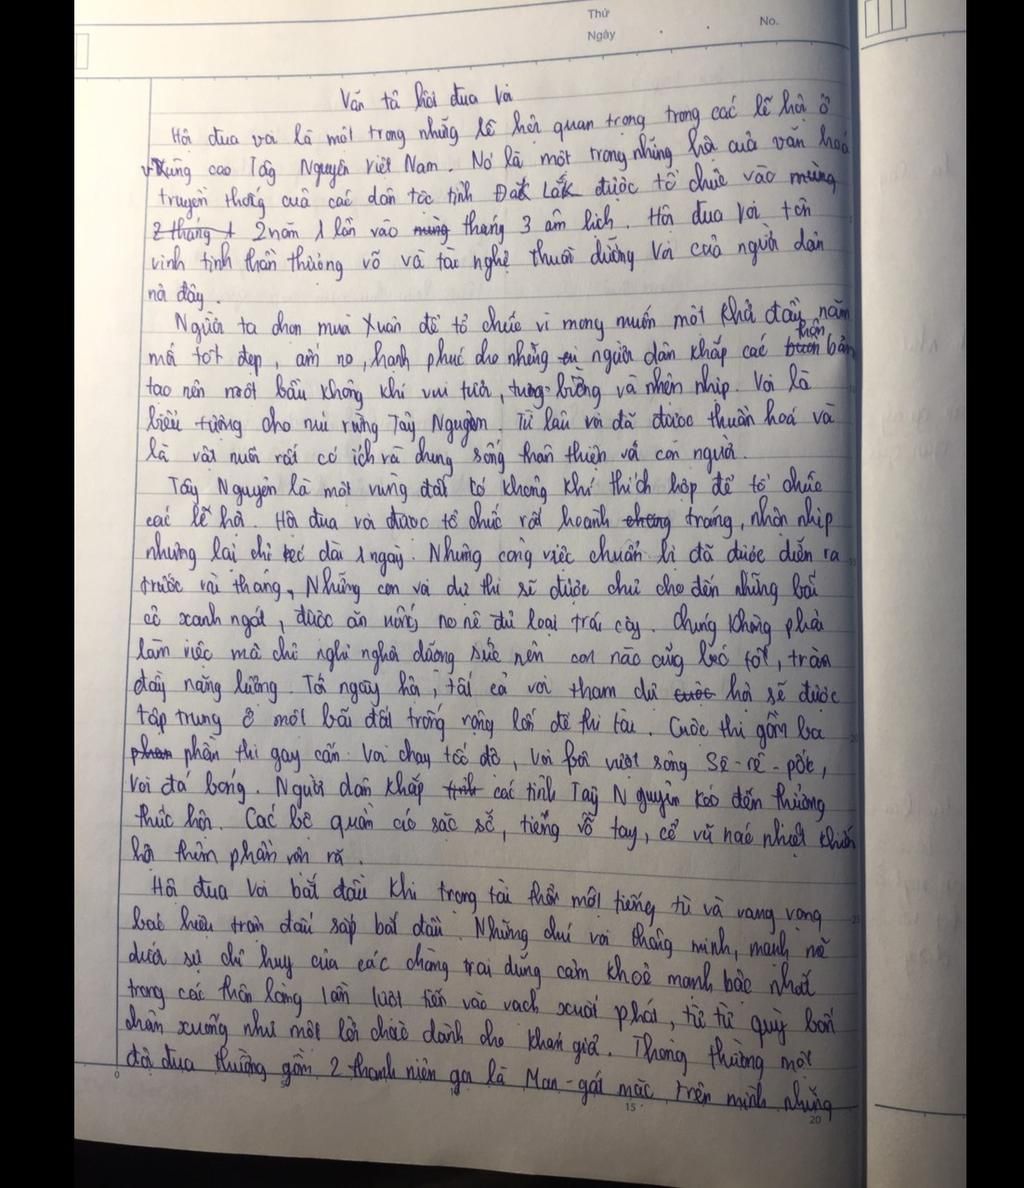 Thứ
No.
Ngày
Văn tả hội đua voi
Hội đua voi là một trong những lễ hội quan trọng trong các lễ hội ở
vùng cao Tây Nguyên Việt Nam. Nó là một trong những hội của văn hoá
truyền thống của các dân tộc tỉnh Đắk Lắk được tổ chức vào mùng
2 tháng 1 2 năm 1 lần vào mùng tháng 3 âm lịch. Hội đua voi tôn
vinh tinh thần thượng võ và tài nghệ thuần dưỡng voi của người dân
nơi đây.
Người ta chọn mùa Xuân để tổ chức vì mong muốn một khởi đầu, năm
mới tốt đẹp, ấm no, hạnh phúc cho những người dân khắp các buôn thôn bản
tạo nên một bầu không khí vui tươi, tưng bừng và nhộn nhịp. Voi là
biểu tượng cho núi rừng Tây Nguyên. Từ lâu voi đã được thuần hoá và
là vật nuôi rất có ích và chung sống thân thiện với con người.
Tây Nguyên là một vùng đất có không khí thích hợp để tổ chức
các lễ hội. Hội đua voi được tổ chức rất hoành tráng, nhộn nhịp
nhưng lại chỉ kéo dài 1 ngày. Những công việc chuẩn bị đã được diễn ra
trước vài tháng, Những con voi dự thi sẽ được chủ cho đến những bãi
cỏ xanh ngát, được ăn uống no nê đủ loại trái cây. Chúng không phải
làm việc mà chỉ nghỉ ngơi dưỡng sức nên con nào cũng béo tốt, tràn
đầy năng lượng. Tới ngày hội, tất cả voi tham dự cuộc hội sẽ được
tập trung ở một bãi đất trống rộng lớn để thi tài. Cuộc thi gồm ba
phần phần thi gay cấn: Voi chạy tốc độ, Voi bơi vượt sông Sê-rê-pốk,
Voi đá bóng. Người dân khắp tỉnh các tỉnh Tây Nguyên kéo đến thưởng
thức hội. Các bộ quần áo sặc sỡ, tiếng vỗ tay, cổ vũ náo nhiệt khiến
hội thêm phần rôm rả.
Hội đua Voi bắt đầu khi trọng tài thổi một tiếng tù và vang vọng
báo hiệu trận đấu sắp bắt đầu. Những chú voi thông minh, mạnh mẽ
dưới sự chỉ huy của các chàng trai dũng cảm khoẻ mạnh bậc nhất
trong các thôn làng lần lượt tiến vào vạch xuất phát, từ từ quỳ bốn
chân xuống như một lời chào dành cho khán giả. Thông thường một
đội đua thường gồm 2 thanh niên gọi là Man-gát mặc trên mình những
0
5
15
20